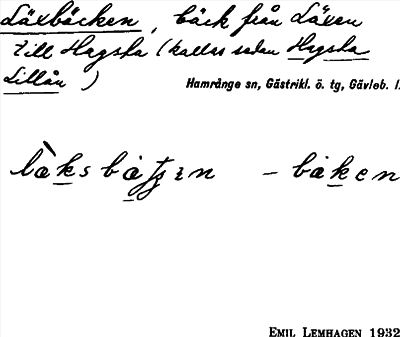 Läxbäcken, bäck från Läxen
till Hagsta (kallas sedan Hagsta
Lillån)
Hamrånge sn, Gästrikl. ö. tg, Gävleb. l.
EMIL LEMHAGEN 1932